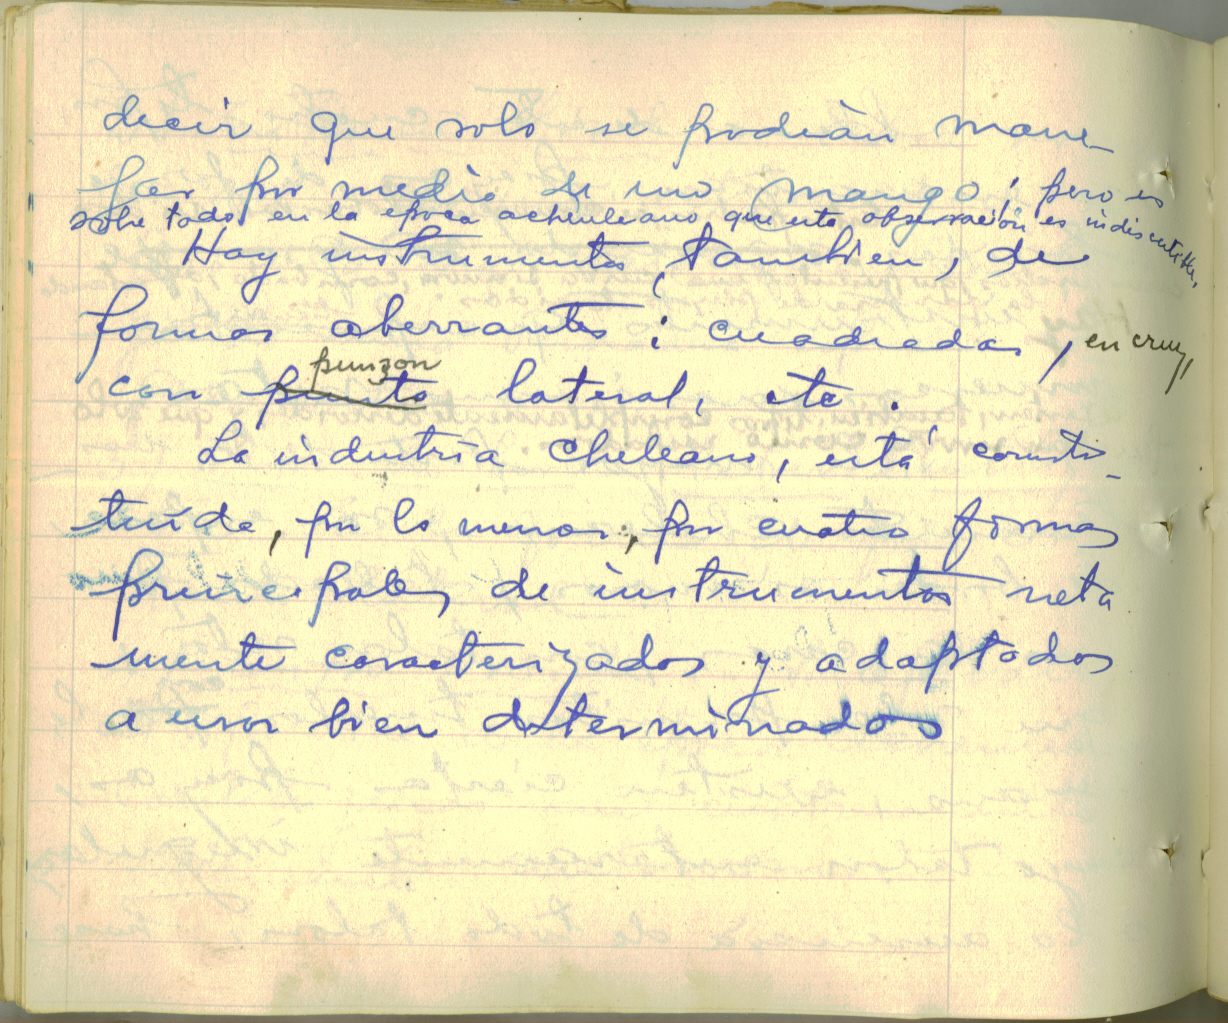 decir que solo se podrian mane-
jar por medio de un mango; pero es
sobre todo, en la epoca acheuleano, que esta observación es indiscutible.
Hay instrumentos, tambien, de
formas aberrantes: cuadradas, en cruz,
con punta punzon lateral, etc.
La industria Cheleano, está consti-
tuida, por lo menos, por cuatro formas
principales de instrumentos neta
mente caracterizados y adaptados
a usos bien determinados